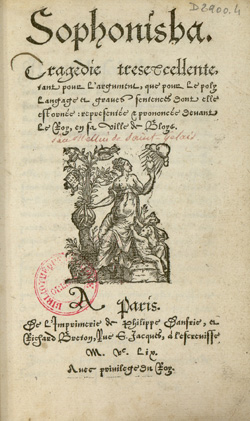 D2900.4
Sophonisba.
Tragedie tresexcellente,
tant pour l'argument, que pour le poly
langage et graves sentences dont elle
est ornée: representée & prononcée devant
le Roy, en sa ville de Bloys.
par Mellin de Saint-Gelais
A Paris.
De l'Imprimerie de Philippe Danfrie, et
Richard Breton, Rue S. Jacques, à l'escreuisse
M. Vᶜ. Lix.
Avec privilege du Roy.